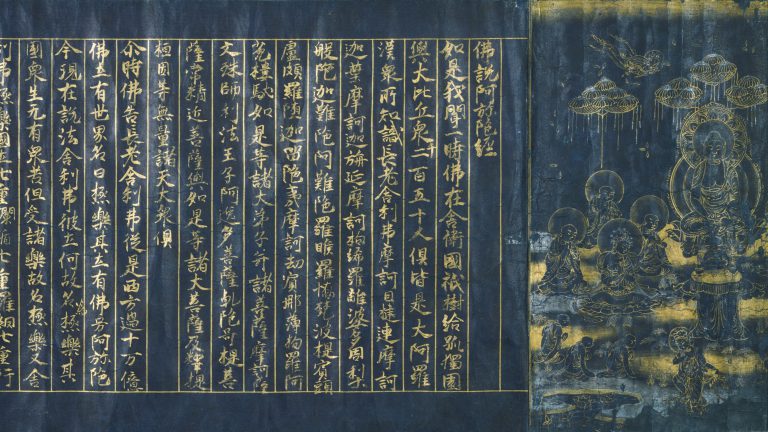 佛説阿弥陀經
如是我聞一時佛在舎衛國祇樹給孤獨園
與大比丘衆千二百五十人倶皆是大阿羅
漢衆所知識長老舎利弗摩訶目揵連摩訶
迦葉摩訶迦旃延摩訶拘絺羅離婆多周梨
般陀迦難陀阿難陀羅睺羅憍梵波提賓頭
盧頗羅墮迦留陀夷摩訶劫賓那薄拘羅阿
㝹樓馱如是等諸大弟子并諸菩薩摩訶薩
文殊師利法王子阿逸多菩薩乾陀訶提菩
薩常精進菩薩與如是等諸大菩薩及釋提
桓因等無量諸天大衆倶
尓時佛告長老舎利弗從是西方過十万億
佛土有世界名曰極樂其土有佛号阿弥陀
今現在説法舎利弗彼土何故名為極樂其
國衆生无有衆苦但受諸樂故名極樂又舎
利弗極樂國土七重闌楯七重羅網七重行